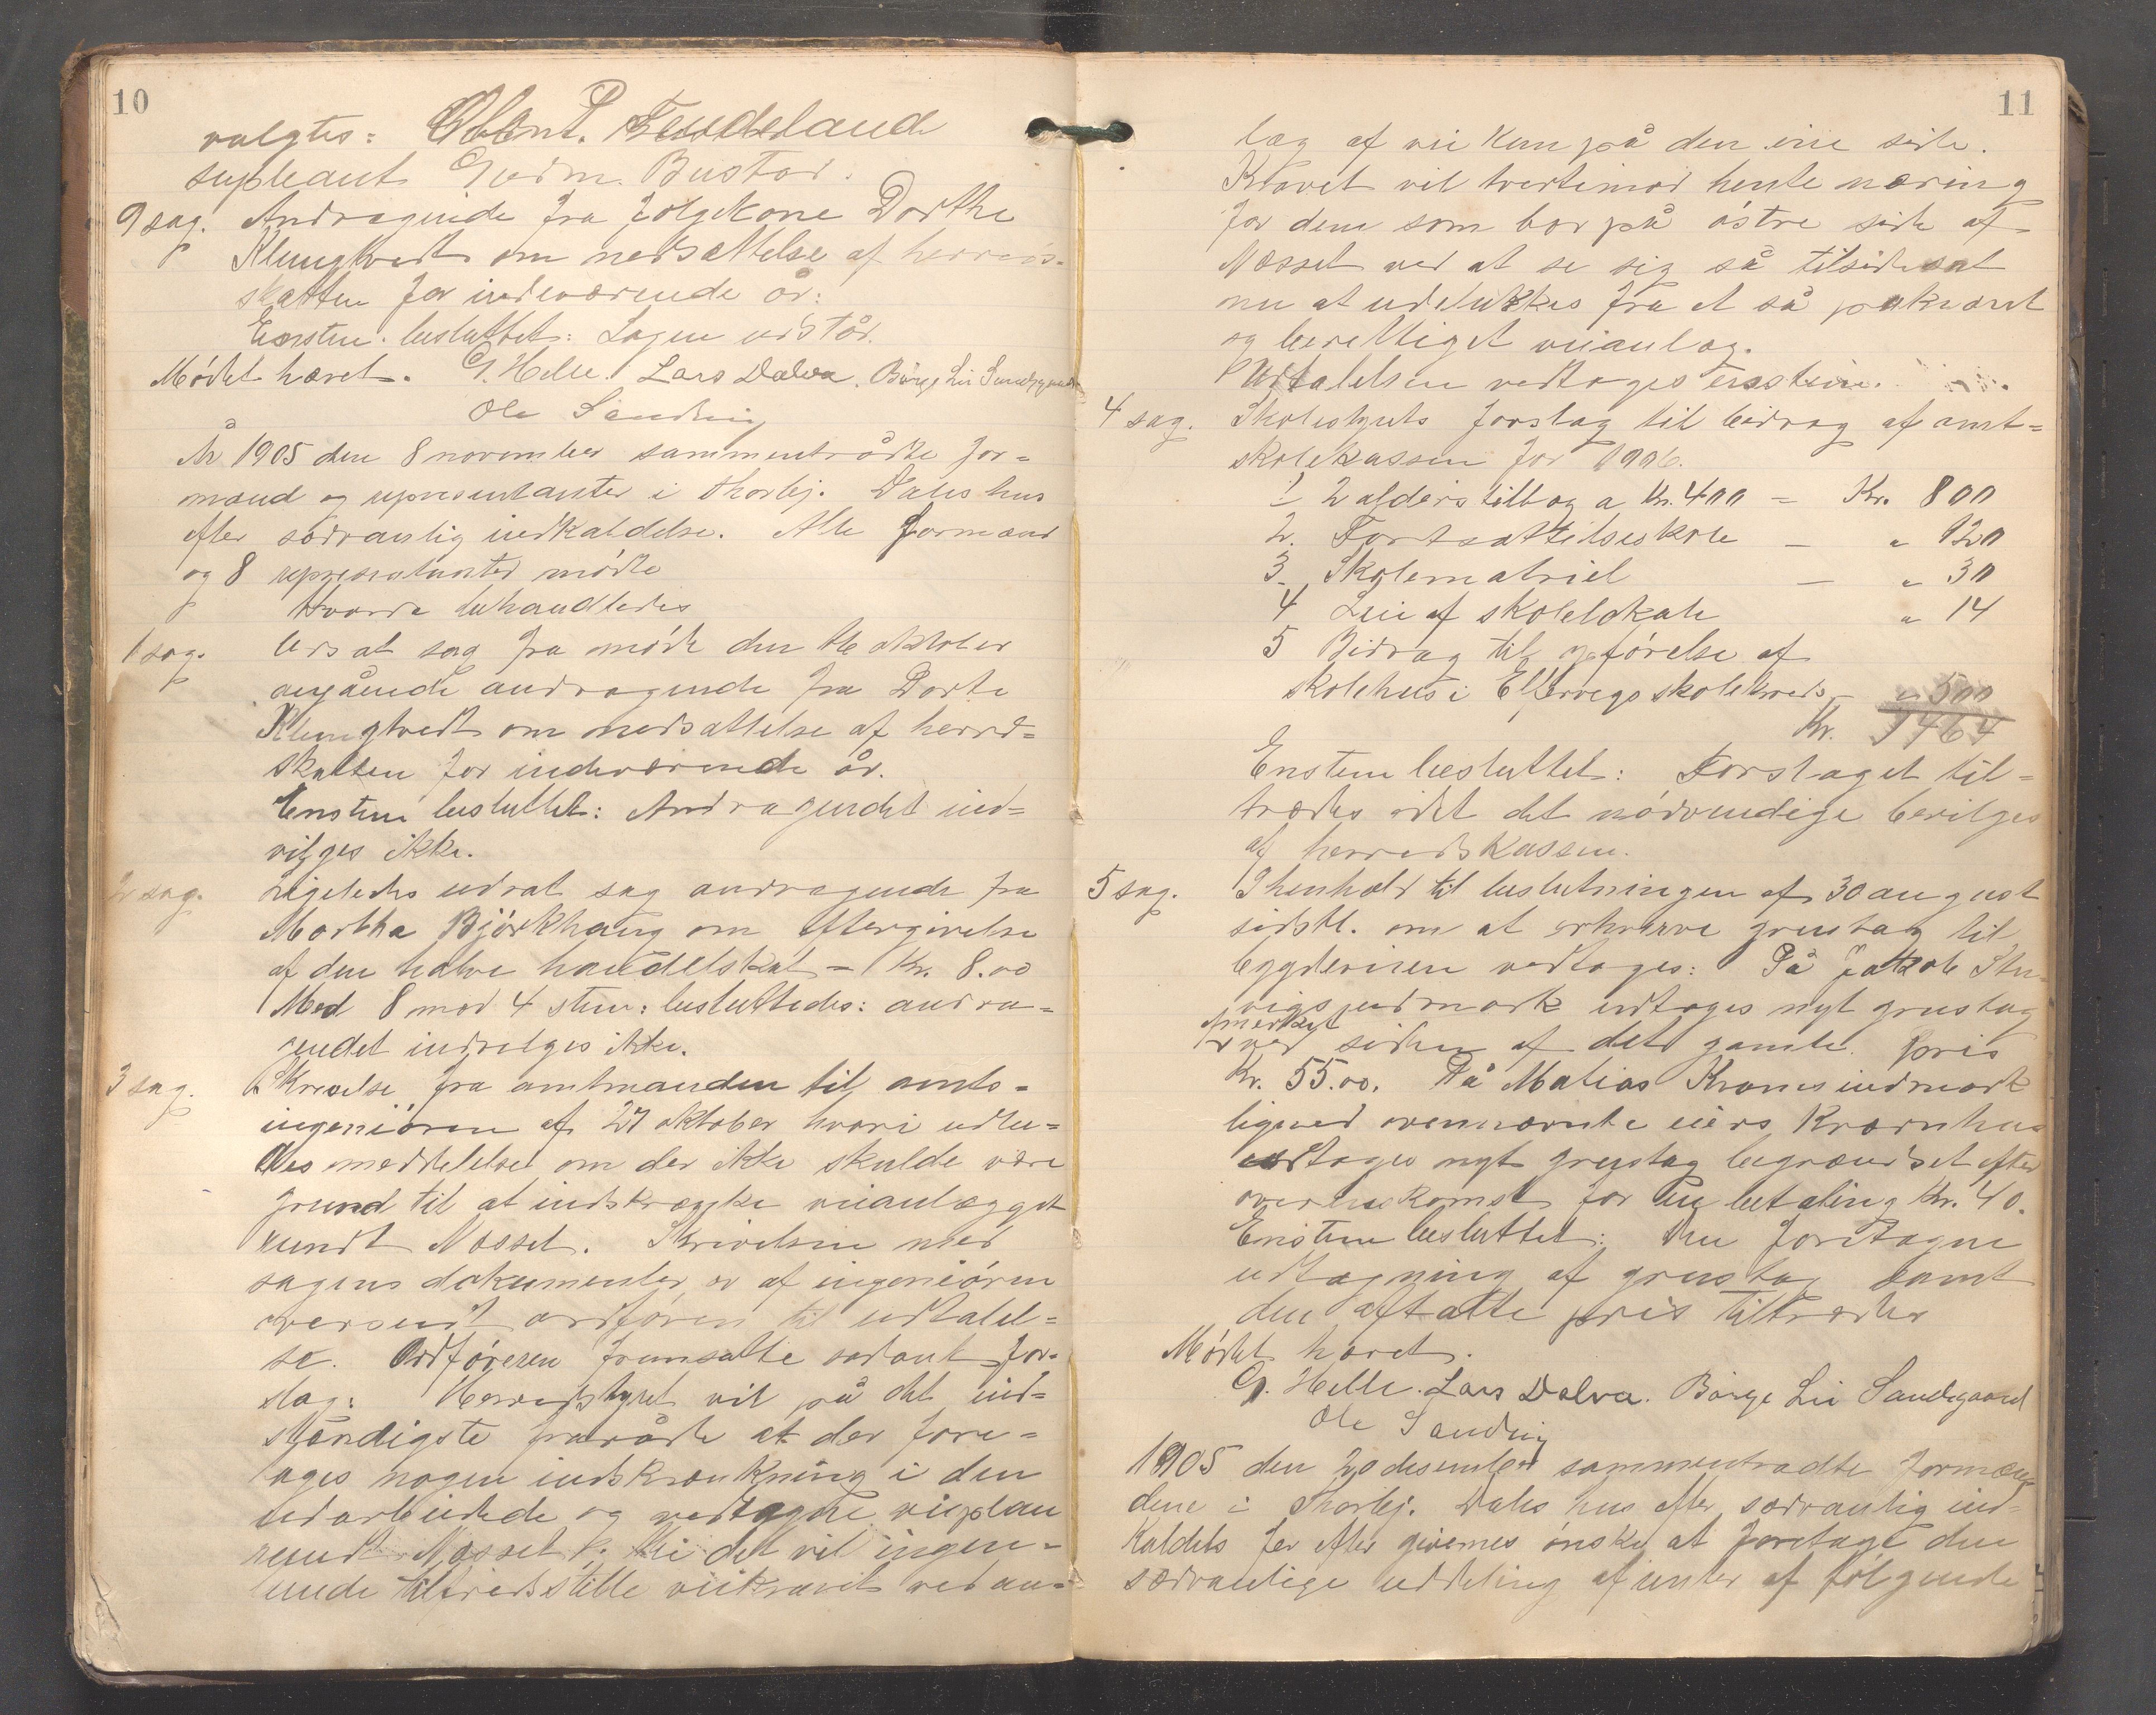 10
valgtes: Obent. Tendeland
supleant Gudm. Bustad.
9 sag. Andragende fra folgekone Dorthe
Klungtvedt om nedsættelse af herreds-
skatten for indeværende år:
Enstem. besluttet: Sagen udstår.
Mødet hævet. G. Helle. Lars Dalva. Börge Lie Sandsgaard
Ole Sandvig
År 1905 den 8 november sammentrådte for-
mænd og representanter i Thorbj. Dales hus
efter sædvanlig indkaldelse. Alle formænd
og 8 representanter mødte
Hvorda behandledes
1 sag. Udsat sag fra møde den 16 oktober
angående andragende fra Dorte
Klungtvedt om nedsættelse af herred-
skatten for indeværende år.
Enstem besluttet: Andragendet ind-
vilges ikke.
2 sag. Ligeledes udsat sag andragende fra
Martha Bjørkhaug om eftergivelse
af den halve handelskat = Kr. 8.00
Med 8 mod 4 stem. besluttedes: andra-
gendet indvilges ikke.
3 sag. Skrivelse fra amtmanden til amts-
ingeniøren af 27 oktober hvori udbe-
des meddelelse om der ikke skulde være
grund til at indskrænke veianlægget
rundt Næsset. Skrivelsen med
sagens dokumenter er af ingeniøren
oversendt ordføren til udtalel-
se. Ordføreren fremsatte sådant for-
slag: Herredstyret vil på det ind-
stændigste fraråde at der fore-
tages nogen indskrænkning i den
udarbeidede og vedtagne veiplan
rundt Næsset. Thi det vil ingen-
lunde tilfredsstille veikravet ved an-
11
læg af vei kun på den ene side.
Kravet vil tvertimod hente næring
for dem som bor på østre side af
Næsset ved at se sig så tilsidesat
nu at udelukkes fra et så påkrævet
og berettiget veianlæg.
Udtalelsen vedtoges enstem.
4 sag. Skolestyrets forslag til bidrag af amt-
skolekassen for 1906.
1 2 alderstillæg a Kr. 400 = Kr. 800
2. Fortsættelseskole — " 120
3. Skolematriel — " 30
4 Leie af skolelokale " 14
5 Bidrag til opførelse af
skolehus i Elfervegs skolekreds — " 500
Kr. 1464
Enstem besluttet: Forslaget til-
trædes idet det nødvendige bevilges
af herredskassen.
5 sag. I henhold til beslutningen af 30 august
sidstl. om at erhverve grustag til
bygdeveien vedtoges: På Jakob Stu-
vigs indmark udtoges nyt grustag
Amerket
ved siden af det gamle. Pris
Kr. 55.00. På Matias Kroms indmark
ligned ovennævnte eiers kværnhus
udtoges nyt grustag begrændset efter
overenskomst for en betaling Kr. 40.
Enstem besluttet: Den foretagne
udtagning af grustag samt
den aftalte pris tiltrædes
Mødet hævet.
G. Helle. Lars Dalva. Börge Lie Sandsgaard
Ole Sandvig
1905 den 20 desember sammentradte formæn-
dene i Thorbj. Dales hus efter sædvanlig ind-
kaldels for efter givernes ønske at foretage den
sædvanlige uddeling af renter af følgende